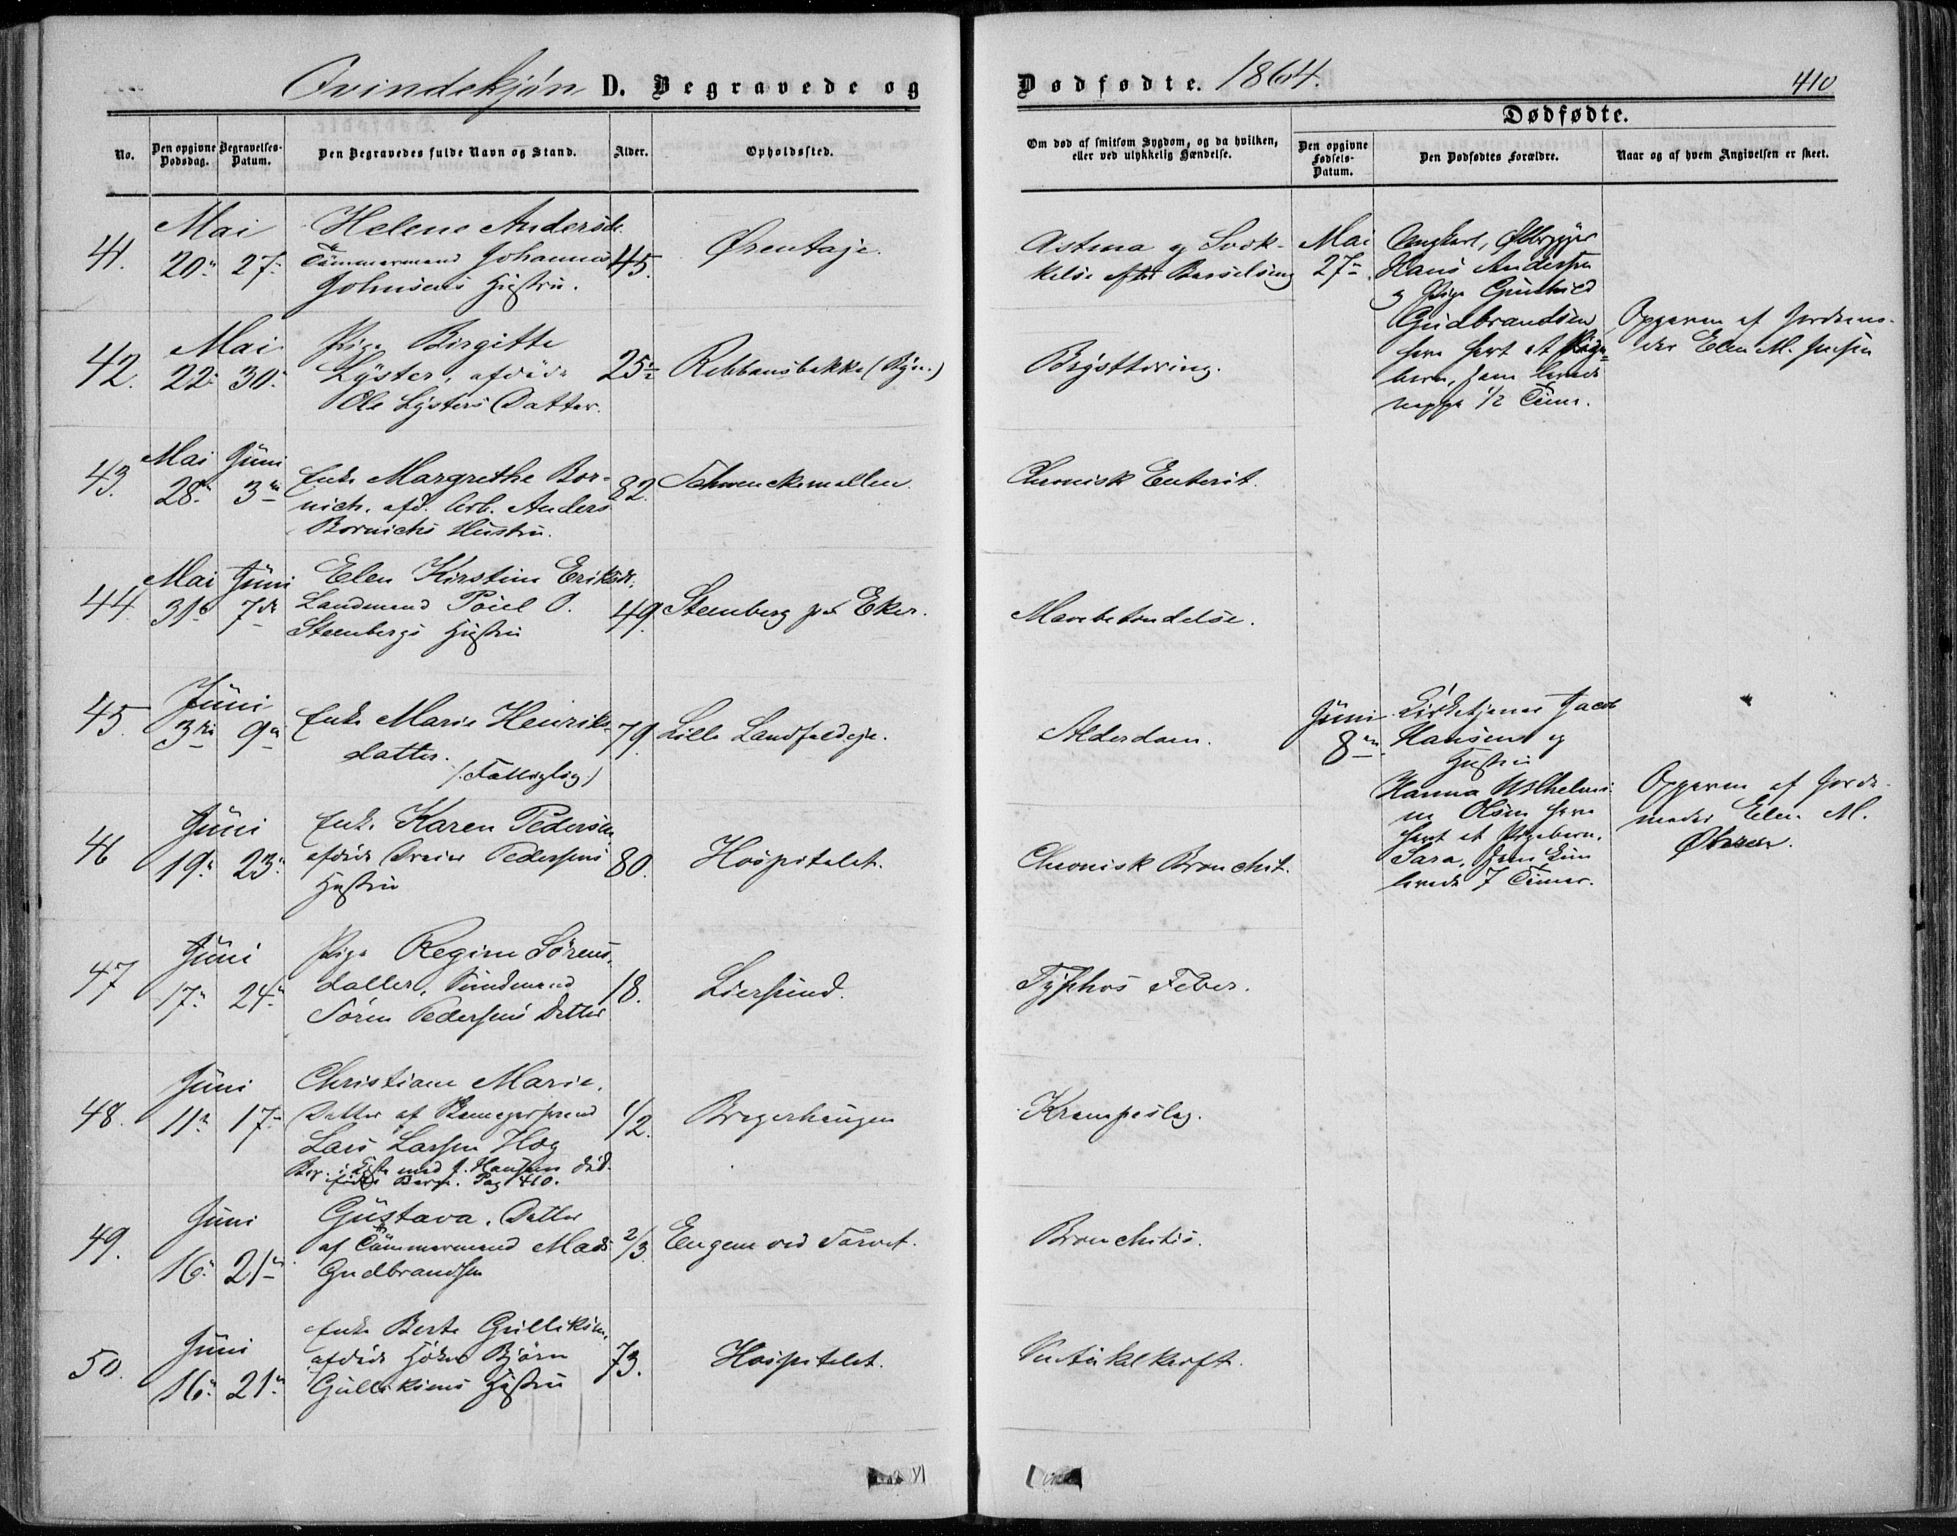 Qvindekjøn D. Begravede og
Dødfødte. 1864.
410
No.
Den opgivne Dødsdag.
Begravelses-Datum.
Den Begravedes fulde Navn og Stand.
Alder.
Opholdssted.
Om død af smitsom Sygdom, og da hvilken,
eller ved ulykkelig Hændelse.
Dødfødte.
Den opgivne Fødsels-Datum.
Den Dødfødtes Forældre.
Naar og af hvem Angivelsen er skeet.
41.
Mai
20 27
Helene Andersdr.
Tømmermand Johannes
Johnsens Hustru.
45.
Øren
Astma og
efter Barselseng
Mai
27
Ungkarl,
Hans Andersen
og Pige Gunhild
Gudbrandsen
have havt et Pige-
barn, som levede
neppe 1/2 Time.
Opgaven af Jordemo-
der Elen M.
42.
Mai
22 30
Pige Birgitte
Lyster, afdøde
Ole Lysters Datter.
25 1/2
Rebbansbakke
Brysttæring.
43.
Mai Juni
28 3
Enke Margrethe Bor-
nich. afd. Arb. Anders
Bornichs Hustru.
82.
Schwenckemollen.
Chronisk Enterit.
44.
Mai Juni
31 7de
Elen Kirstine Eriksdr.
Landmand Poul O.
Steenbergs Hustru
49.
Steenberg paa Eker.
Mavebetændelse.
45.
Juni
3die 9
Enke Marie Henriks-
datter.
(Fattiglig)
79.
Lille Landfaldeje.
Alderdom.
Juni
8
Kirketjener Jacob
Hansen og
Hustru
Hanna Wilhelmi-
ne Olsen have
havt et Pigebarn,
Sara, som kun
levede 7 Timer.
Opgaven af Jorde-
moder Elen M.
46
Juni
19 23
Enke Karen Pedersen
afdøde Dreier Pedersens
Hustru
80.
Hospitalet.
Chronisk Bronchit.
47
Juni
17 24
Pige Regine Sørens-
datter,
Søren Pedersens Datter
18.
Liersund.
Typhøs Feber.
48.
Juni
11 17
Christiane Marie,
Datter af
Lars Larsen Hog
Beg. i Kiste med J. Hansens død-
fødte Barn. Pag 410.
1/2.
Bragerhaugen
Krampeslag.
49.
Juni
16 21
Gustava, Datter
af Tømmermand Mads
Gudbrandsen
2/3
Engene ved Torvet.
Bronchitis.
50.
Juni
16 21
Enke Berte Gulliksen,
afdøde Høker Bjørn
Gulliksens Hustru
73.
Hospitalet.